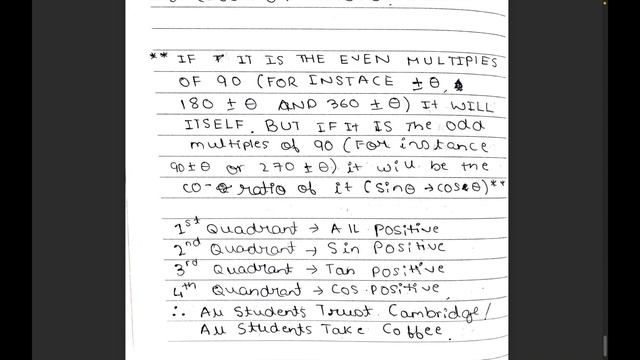 ** IF IT IS THE EVEN MULTIPLES
OF 90 (FOR INSTACE ±θ,
180 ± θ AND 360 ± θ) IT WILL
ITSELF. BUT IF It IS The odd
multiples of 90 (For instance
90±θ or 270 ± θ) it will be the
co- ratio of it (Sinθ → cosθ)**
1st Quadrant → All Positive
2nd Quadrant → Sin Positive
3rd Quadrant → Tan Positive
4th Quandrant → Cos Positive
∴ All Students Trust Cambridge/
All Students Take Coffee.